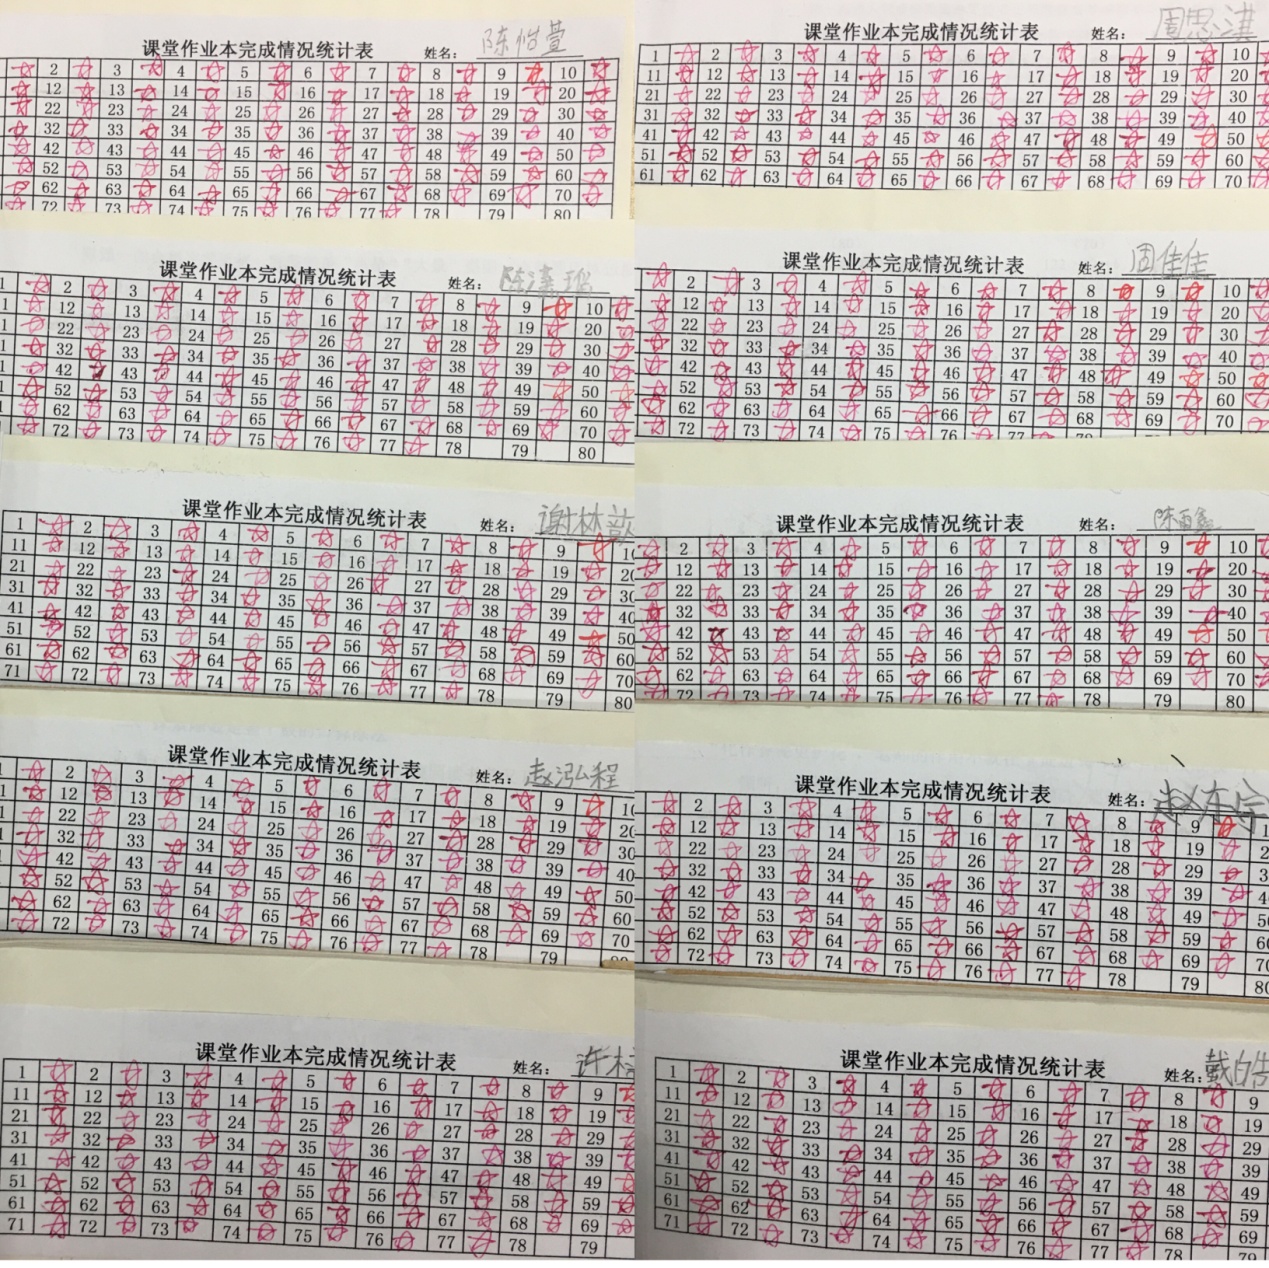 课堂作业本完成情况统计表 姓名：陈怡萱
2 3 4 5 6 7 8 9 10
12 13 14 15 16 17 18 19 20
22 23 24 25 26 27 28 29 30
32 33 34 35 36 37 38 39 40
42 43 44 45 46 47 48 49 50
52 53 54 55 56 57 58 59 60
62 63 64 65 66 67 68 69 70
72 73 74 75 76 77 78 79 80
课堂作业本完成情况统计表 姓名：周思淇
1 2 3 4 5 6 7 8 9 10
11 12 13 14 15 16 17 18 19 20
21 22 23 24 25 26 27 28 29 30
31 32 33 34 35 36 37 38 39 40
41 42 43 44 45 46 47 48 49 50
51 52 53 54 55 56 57 58 59 60
61 62 63 64 65 66 67 68 69 70
课堂作业本完成情况统计表 姓名：陈
2 3 4 5 6 7 8 9 10
12 13 14 15 16 17 18 19 20
22 23 24 25 26 27 28 29 30
32 33 34 35 36 37 38 39 40
42 43 44 45 46 47 48 49 50
52 53 54 55 56 57 58 59 60
62 63 64 65 66 67 68 69 70
72 73 74 75 76 77 78 79 80
课堂作业本完成情况统计表 姓名：周佳佳
2 3 4 5 6 7 8 9 10
12 13 14 15 16 17 18 19 20
22 23 24 25 26 27 28 29 30
32 33 34 35 36 37 38 39 40
42 43 44 45 46 47 48 49 50
52 53 54 55 56 57 58 59 60
62 63 64 65 66 67 68 69 70
72 73 74 75 76 77
课堂作业本完成情况统计表 姓名：谢林歆
1 2 3 4 5 6 7 8 9
11 12 13 14 15 16 17 18 19 20
21 22 23 24 25 26 27 28 29 30
31 32 33 34 35 36 37 38 39 40
41 42 43 44 45 46 47 48 49 50
51 52 53 54 55 56 57 58 59 60
61 62 63 64 65 66 67 68 69 70
71 72 73 74 75 76 77 78 79 80
课堂作业本完成情况统计表 姓名：陈百鑫
2 3 4 5 6 7 8 9 10
12 13 14 15 16 17 18 19 20
22 23 24 25 26 27 28 29 30
32 33 34 35 36 37 38 39 40
42 43 44 45 46 47 48 49 50
52 53 54 55 56 57 58 59 60
62 63 64 65 66 67 68 69 70
72 73 74 75 76 77 78 79 80
课堂作业本完成情况统计表 姓名：赵泓程
2 3 4 5 6 7 8 9 10
12 13 14 15 16 17 18 19 20
22 23 24 25 26 27 28 29 30
32 33 34 35 36 37 38 39 40
42 43 44 45 46 47 48 49 50
52 53 54 55 56 57 58 59 60
62 63 64 65 66 67 68 69 70
72 73 74 75 76 77 78 79 80
课堂作业本完成情况统计表 姓名：赵东宇
2 3 4 5 6 7 8 9
12 13 14 15 16 17 18 19
22 23 24 25 26 27 28 29
32 33 34 35 36 37 38 39
42 43 44 45 46 47 48 49
52 53 54 55 56 57 58 59 60
62 63 64 65 66 67 68 69 70
72 73 74 75 76 77 78 79 80
课堂作业本完成情况统计表 姓名：许
1 2 3 4 5 6 7 8 9
11 12 13 14 15 16 17 18 19
21 22 23 24 25 26 27 28 29
31 32 33 34 35 36 37 38 39
41 42 43 44 45 46 47 48 49
51 52 53 54 55 56 57 58 59
61 62 63 64 65 66 67 68 69
71 72 73 74 75 76 77 78 79
课堂作业本完成情况统计表 姓名：戴皓
1 2 3 4 5 6 7 8 9
11 12 13 14 15 16 17 18 19
21 22 23 24 25 26 27 28 29
31 32 33 34 35 36 37 38 39
41 42 43 44 45 46 47 48 49
51 52 53 54 55 56 57 58 59
61 62 63 64 65 66 67 68 69
71 72 73 74 75 76 77 78 79